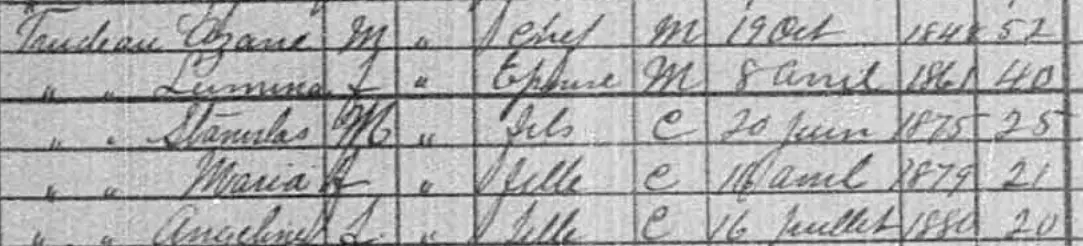 Trudeau Ozane M " Chef M 19 Oct 1848 52
" " Lumina f " Epouse M 8 avril 1861 40
" " Stanislas M " fils C 20 Juin 1875 25
" " Maria f " fille C 16 avril 1879 21
" " Angeline f. " fille C 16 Juillet 1880 20